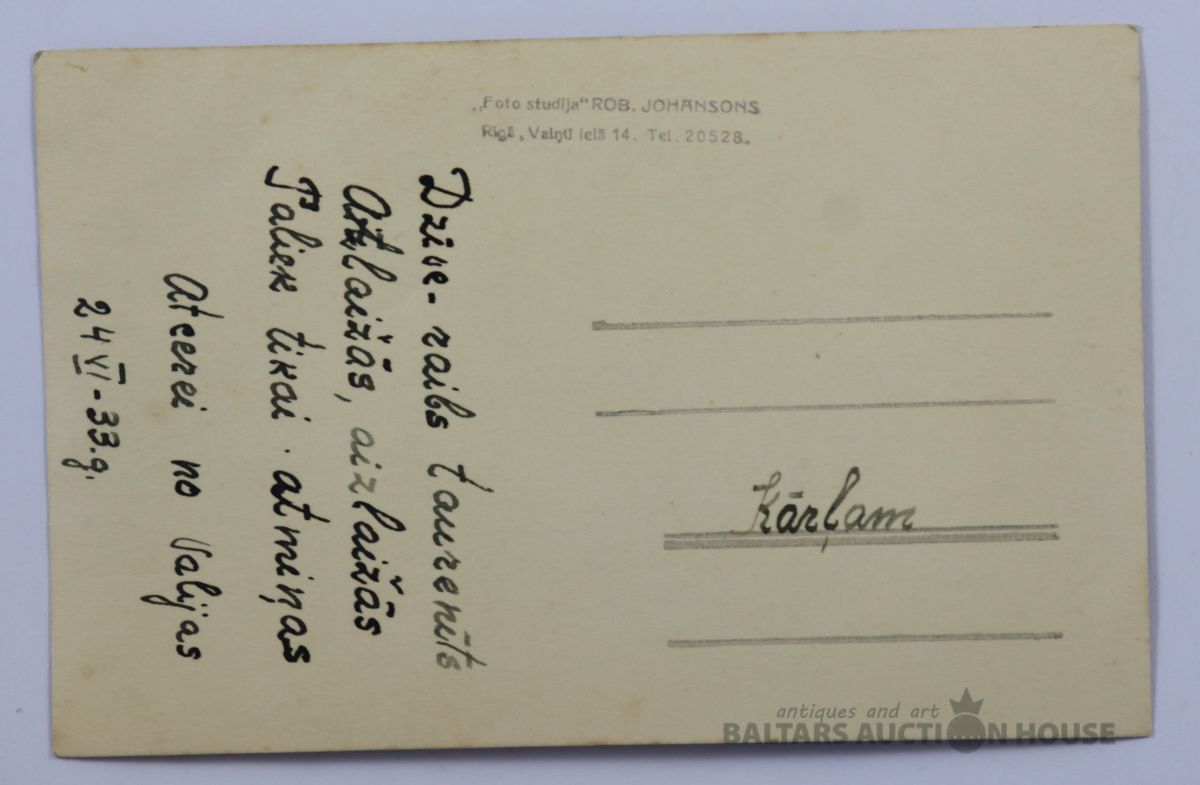 „Foto studija“ ROB. JOHANSONS
Rīgā, Vaļņu ielā 14. Tel. 20528.
Dzīve - raibs taurenīts
Atlaižās, aizlaižās
Paliek tikai atmiņas
Atcerei no Valijas
24 VI - 33.g.
Kārļam
antiques and art
BALTARS AUCTION HOUSE